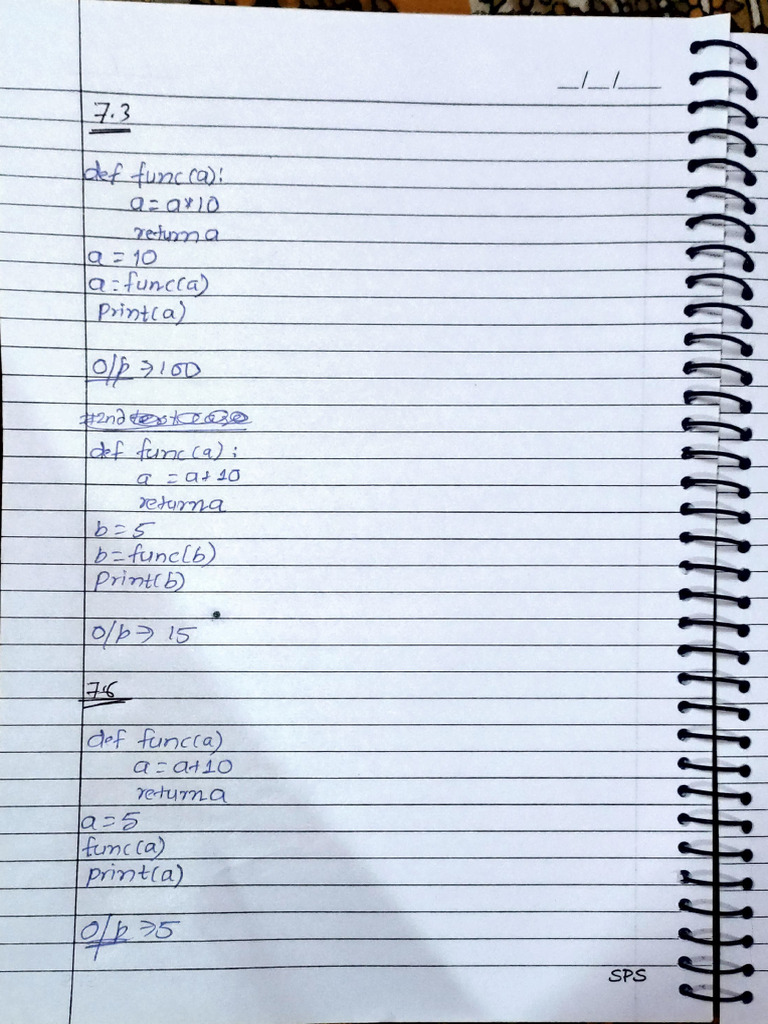 _/_/_
7.3
def func(a):
a = a*10
return a
a = 10
a = func(a)
Print(a)
O/p => 100
#2nd
def func(a):
a = a+10
return a
b = 5
b = func(b)
Print(b)
O/p => 15
def func(a)
a = a+10
return a
a = 5
func(a)
print(a)
O/p => 5
SPS